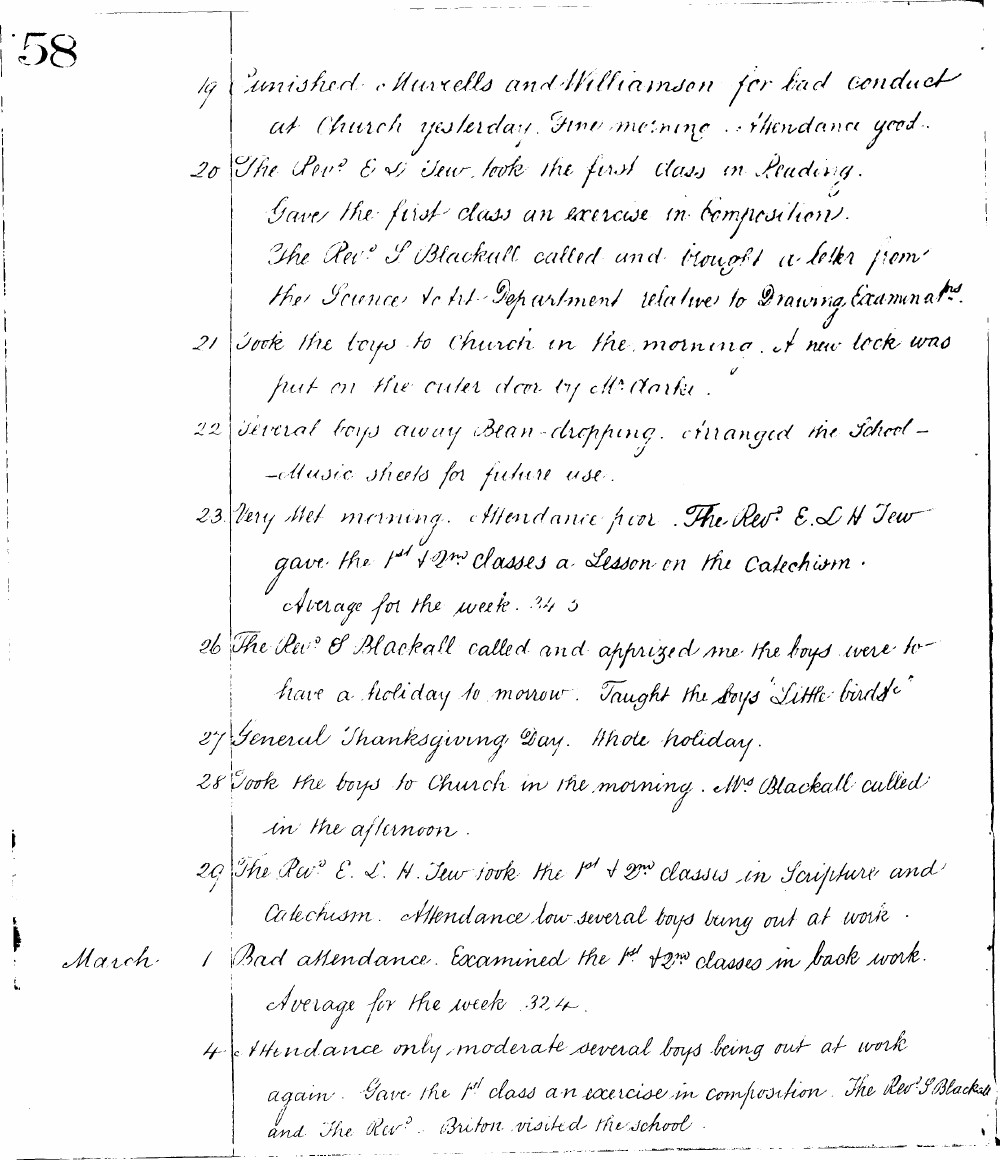 58
19 Punished Murrells and Williamson for bad conduct
at Church yesterday. Fine morning. Attendance good.
20 The Revd E L Tew took the first class in Reading.
Gave the first class an exercise in Composition.
The Revd S Blackall called and brought a letter from
the Science & Art Department relative to Drawing Examinatns.
21 Took the boys to Church in the morning. A new lock was
put on the outer door by Mr Clarke.
22 Several boys away Bean-dropping. Arranged the School-
-Music sheets for future use.
23. Very Wet morning. Attendance poor. The Revd E. L H Tew
gave the 1st & 2nd classes a Lesson on the Catechism.
Average for the week. 34 5
26 The Revd S Blackall called and apprized me the boys were to
have a holiday to morrow. Taught the boys "Little birds &c"
27 General Thanksgiving Day. Whole holiday.
28 Took the boys to Church in the morning. Mrs Blackall called
in the afternoon.
29 The Revd E. L. H. Tew took the 1st & 2nd classes in Scripture and
Catechism. Attendance low several boys being out at work.
March. 1 Bad attendance. Examined the 1st & 2nd classes in back work.
Average for the week 32,4.
4 Attendance only moderate several boys being out at work
again. Gave the 1st class an exercise in composition. The Revd S Blackall
and The Revd. Briton visited the school.